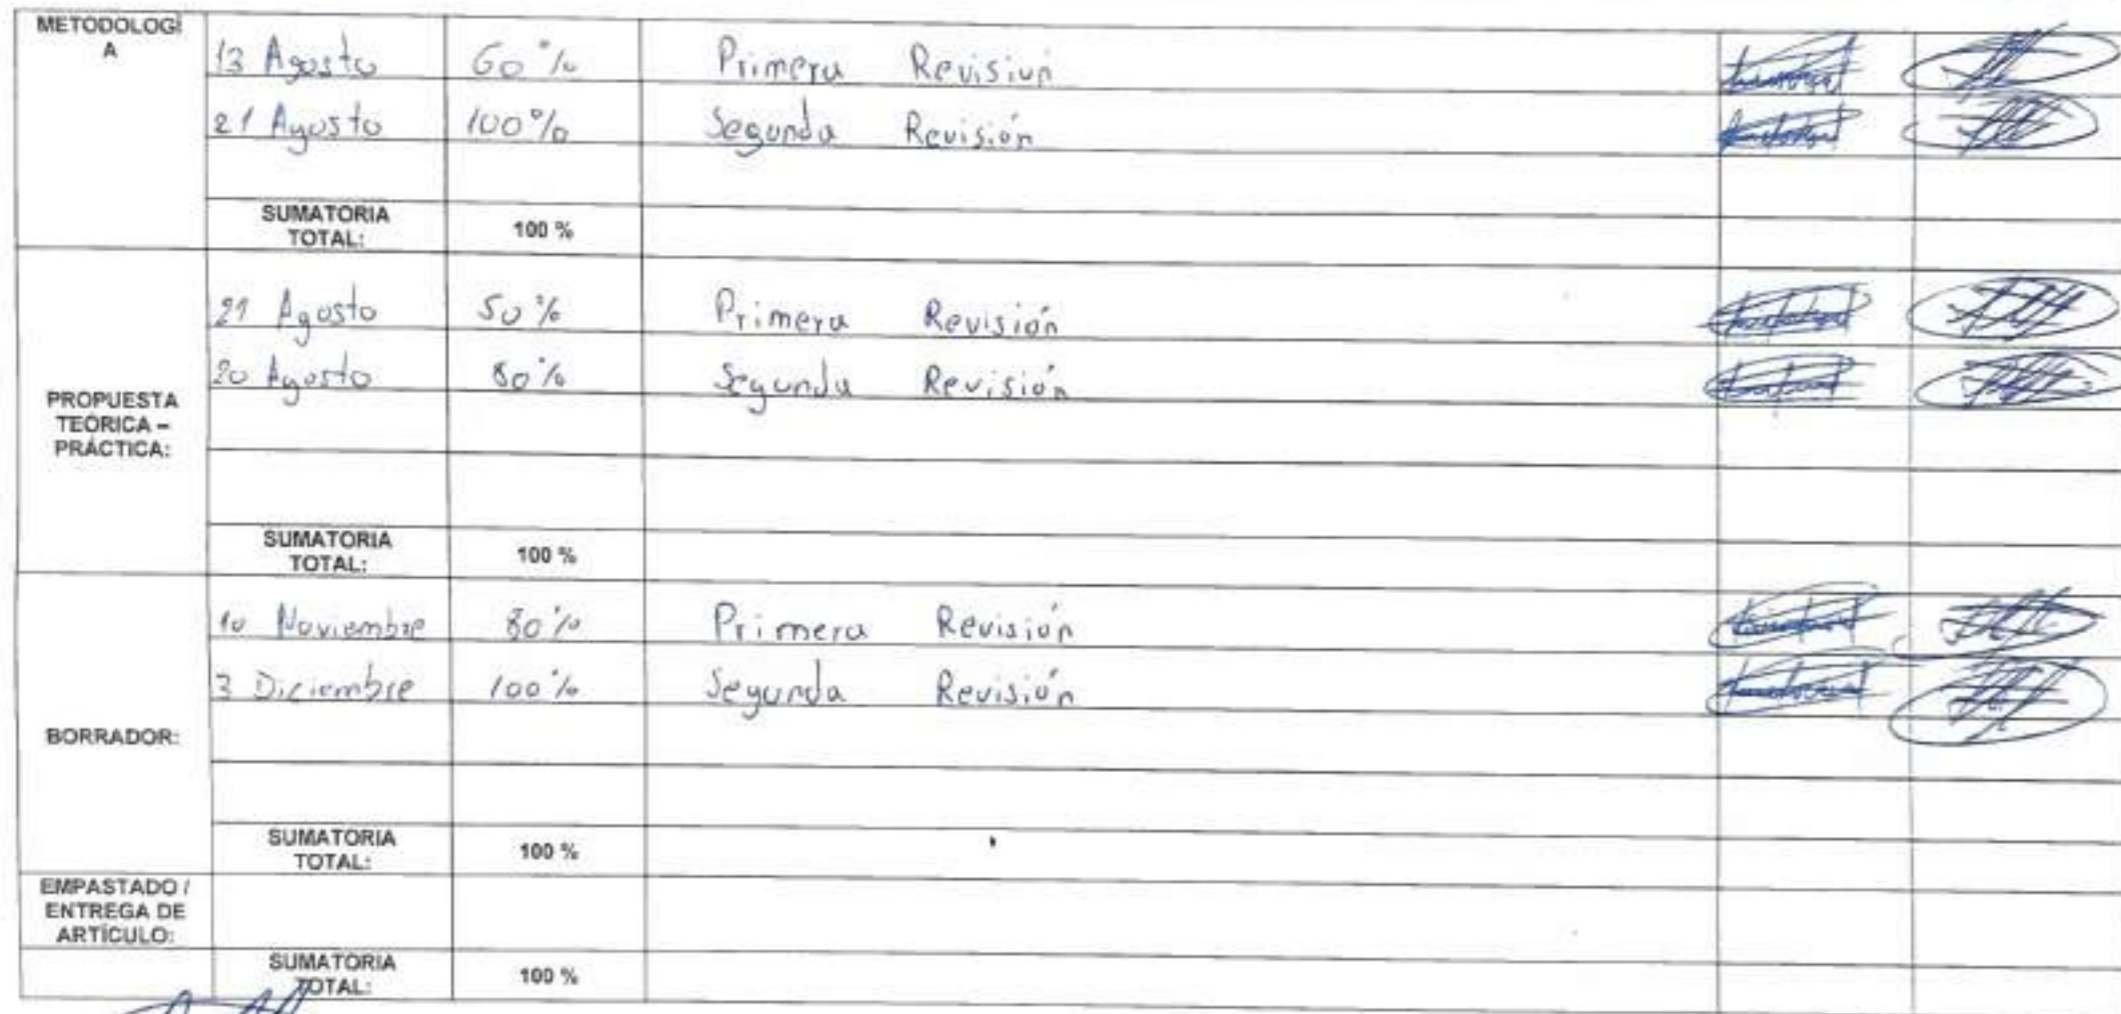 METODOLOGÍ
A
13 Agosto 60% Primera Revisión
21 Agosto 100% Segunda Revisión
SUMATORIA
TOTAL: 100 %
PROPUESTA
TEÓRICA –
PRÁCTICA:
21 Agosto 50% Primera Revisión
20 Agosto 80% Segunda Revisión
SUMATORIA
TOTAL: 100 %
BORRADOR:
10 Noviembre 80% Primera Revisión
3 Diciembre 100% Segunda Revisión
SUMATORIA
TOTAL: 100 %
EMPASTADO /
ENTREGA DE
ARTÍCULO:
SUMATORIA
TOTAL: 100 %